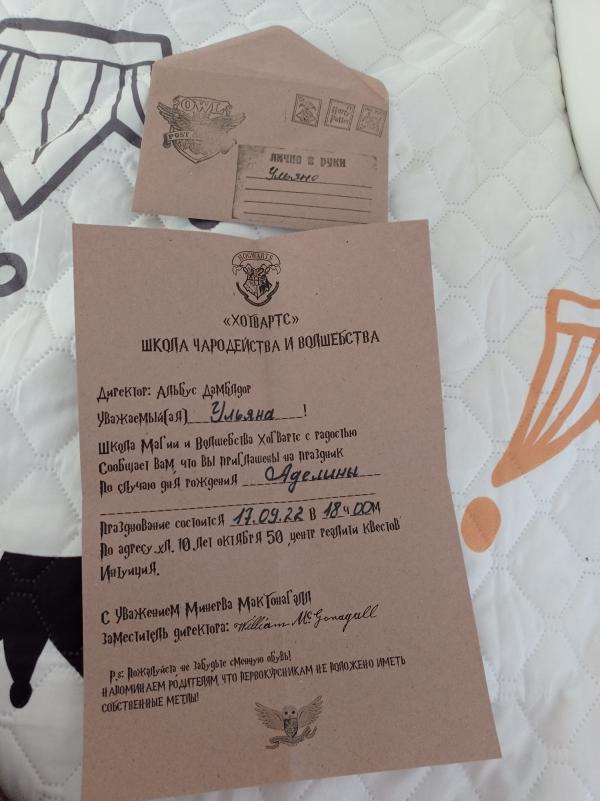 OWL
POST
Harry
Potter
ЛИЧНО В РУКИ
Ульяне
HOGWARTS
«ХОГВАРТС»
ШКОЛА ЧАРОДЕЙСТВА И ВОЛШЕБСТВА
Директор: Альбус Дамблдор
Уважаемый(ая) Ульяна !
Школа Магии и Волшебства Хогвартс с радостью
Сообщает Вам, что Вы приглашены на праздник
По случаю дня рождения Аделины
Празднование состоится 17.09.22 в 18 ч. 00м
По адресу ул. 10 лет октября 50 центр реалити квестов
Интуиция.
С уважением Минерва МакГонагалл
Заместитель директора: William McGonagall
P.s: Пожалуйста не забудьте сменную обувь!
НАПОМИНАЕМ РОДИТЕЛЯМ, ЧТО ПЕРВОКУРСНИКАМ НЕ ПОЛОЖЕНО ИМЕТЬ
СОБСТВЕННЫЕ МЕТЛЫ!